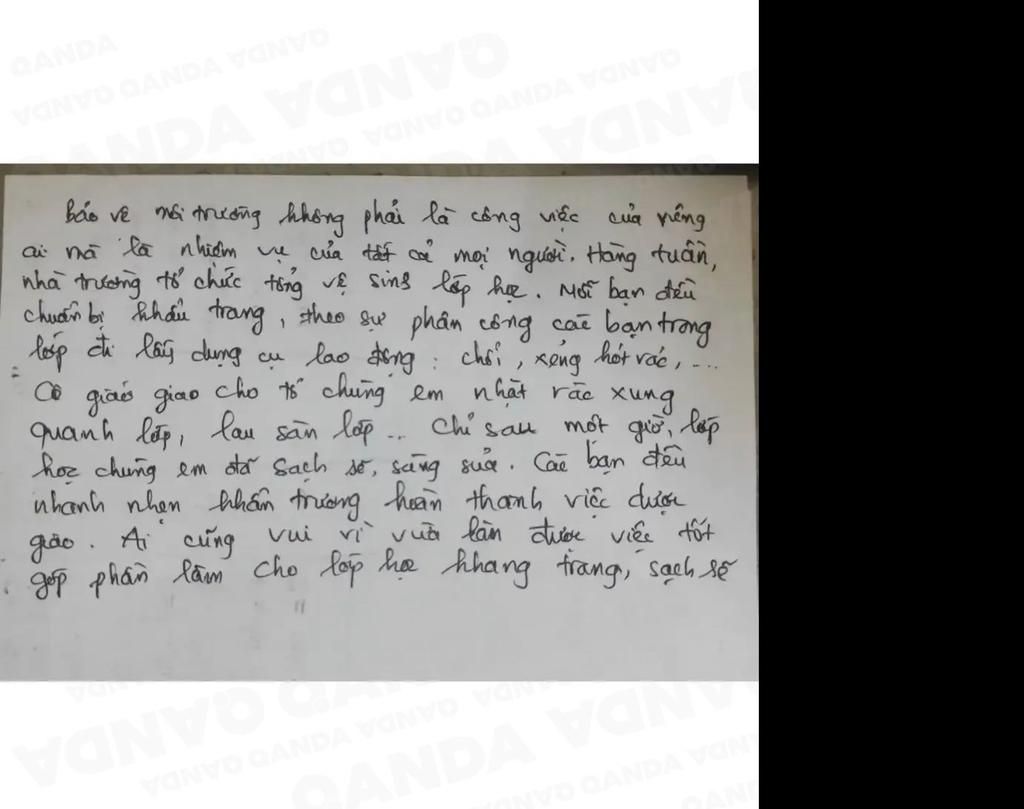 QANDA
QANDA QANDA QANDA
QANDA QANDA
QANDA QANDA QANDA
Bảo vệ môi trường không phải là công việc của riêng
ai mà là nhiệm vụ của tất cả mọi người. Hàng tuần,
nhà trường tổ chức tổng vệ sinh lớp học. Mỗi bạn đều
chuẩn bị khẩu trang, theo sự phân công các bạn trong
lớp đi lấy dụng cụ lao động: chổi, xẻng hót rác, ...
Cô giáo giao cho tổ chúng em nhặt rác xung
quanh lớp, lau sàn lớp .. Chỉ sau một giờ, lớp
học chúng em đã sạch sẽ, sáng sủa. Các bạn đều
nhanh nhẹn khẩn trương hoàn thanh việc được
giao. Ai cũng vui vì vừa làn được việc tốt
góp phần làm cho lớp học khang trang, sạch sẽ
QANDA QANDA QANDA
QANDA QANDA
QANDA QANDA QANDA
QANDA QANDA